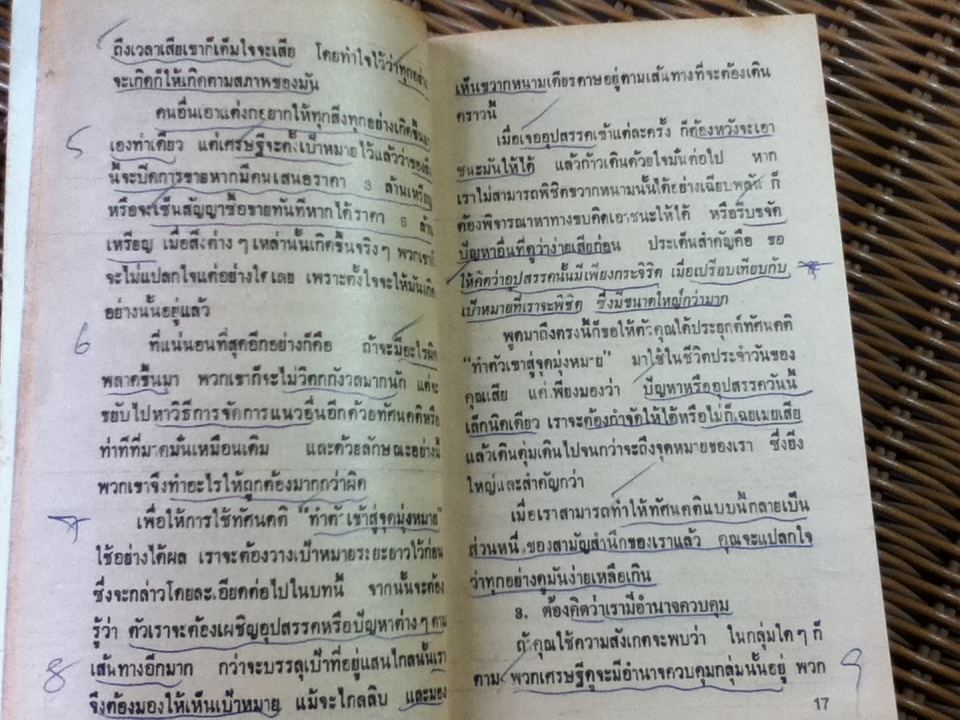 ถึงเวลาเสียเขาก็เต็มใจจะเสีย โดยทำใจไว้ว่าทุกอย่าง
จะเกิดก็ให้เกิดตามสภาพของมัน
คนอื่นเอาแต่งกอยากให้ทุกสิ่งทุกอย่างเกิดขึ้นมา
เองท่าเดียว แต่เศรษฐีจะตั้งเป้าหมายไว้แล้วว่าของสิ่ง
นี้จะปิดการขายหากมีคนเสนอราคา 3 ล้านเหรียญ
หรือจะเซ็นสัญญาซื้อขายทันทีหากได้ราคา 6 ล้าน
เหรียญ เมื่อสิ่งต่าง ๆ เหล่านั้นเกิดขึ้นจริง ๆ พวกเขาก็
จะไม่แปลกใจแต่อย่างใดเลย เพราะตั้งใจจะให้มันเกิด
อย่างนั้นอยู่แล้ว
ที่แน่นอนที่สุดอีกอย่างก็คือ ถ้าจะมีอะไรผิด
พลาดขึ้นมา พวกเขาก็จะไม่วิตกกังวลมากนัก แต่จะ
ขยับไปหาวิธีการจัดการแนวอื่นอีกด้วยทัศนคติหรือ
ท่าทีที่มาดมั่นเหมือนเดิม และด้วยลักษณะอย่างนี้
พวกเขาจึงทำอะไรให้ถูกต้องมากกว่าผิด
เพื่อให้การใช้ทัศนคติ "ทำตัวเข้าสู่จุดมุ่งหมาย"
ใช้อย่างได้ผล เราจะต้องวางเป้าหมายระยะยาวไว้ก่อน
ซึ่งจะกล่าวโดยละเอียดต่อไปในบทนี้ จากนั้นจะต้อง
รู้ว่า ตัวเราจะต้องเผชิญอุปสรรคหรือปัญหาต่าง ๆ ตาม
เส้นทางอีกมาก กว่าจะบรรลุเป้าที่อยู่แสนไกลนั้นเรา
จึงต้องมองให้เห็นเป้าหมาย แม้จะไกลลิบ และมอง
5
6
7
8
เห็นขวากหนามเดียรดาษอยู่ตามเส้นทางที่จะต้องเดิน
คราวนี้
เมื่อเจออุปสรรคเข้าแต่ละครั้ง ก็ต้องหวังจะเอา
ชนะมันให้ได้ แล้วก้าวเดินด้วยใจมั่นต่อไป หาก
เราไม่สามารถพิชิตขวากหนามนั้นได้อย่างเฉียบพลัน ก็
ต้องพิจารณาหาทางขบคิดเอาชนะให้ได้ หรือรีบขจัด
ปัญหาอื่นที่ดูว่าง่ายเสียก่อน ประเด็นสำคัญคือ ขอ
ให้คิดว่าอุปสรรคนั้นมีเพียงกระจิริด เมื่อเปรียบเทียบกับ
เป้าหมายที่เราจะพิชิต ซึ่งมีขนาดใหญ่กว่ามาก
พูดมาถึงตรงนี้ก็ขอให้ตัวคุณได้ประยุกต์ทัศนคติ
"ทำตัวเข้าสู่จุดมุ่งหมาย" มาใช้ในชีวิตประจำวันของ
คุณเสีย แค่เพียงมองว่า ปัญหาหรืออุปสรรควันนี้
เล็กนิดเดียว เราจะต้องกำจัดให้ได้หรือไม่ก็เฉยเมยเสีย
แล้วเดินดุ่มเดินไปจนกว่าจะถึงจุดหมายของเรา ซึ่งยิ่ง
ใหญ่และสำคัญกว่า
เมื่อเราสามารถทำให้ทัศนคติแบบนี้กลายเป็น
ส่วนหนึ่งของสามัญสำนึกของเราแล้ว คุณจะแปลกใจ
ว่าทุกอย่างดูมันง่ายเหลือเกิน
3. ต้องคิดว่าเรามีอำนาจควบคุม
ถ้าคุณใช้ความสังเกตจะพบว่า ในกลุ่มใด ๆ ก็
ตาม พวกเศรษฐีดูจะมีอำนาจควบคุมกลุ่มนั้นอยู่ พวก
9
17